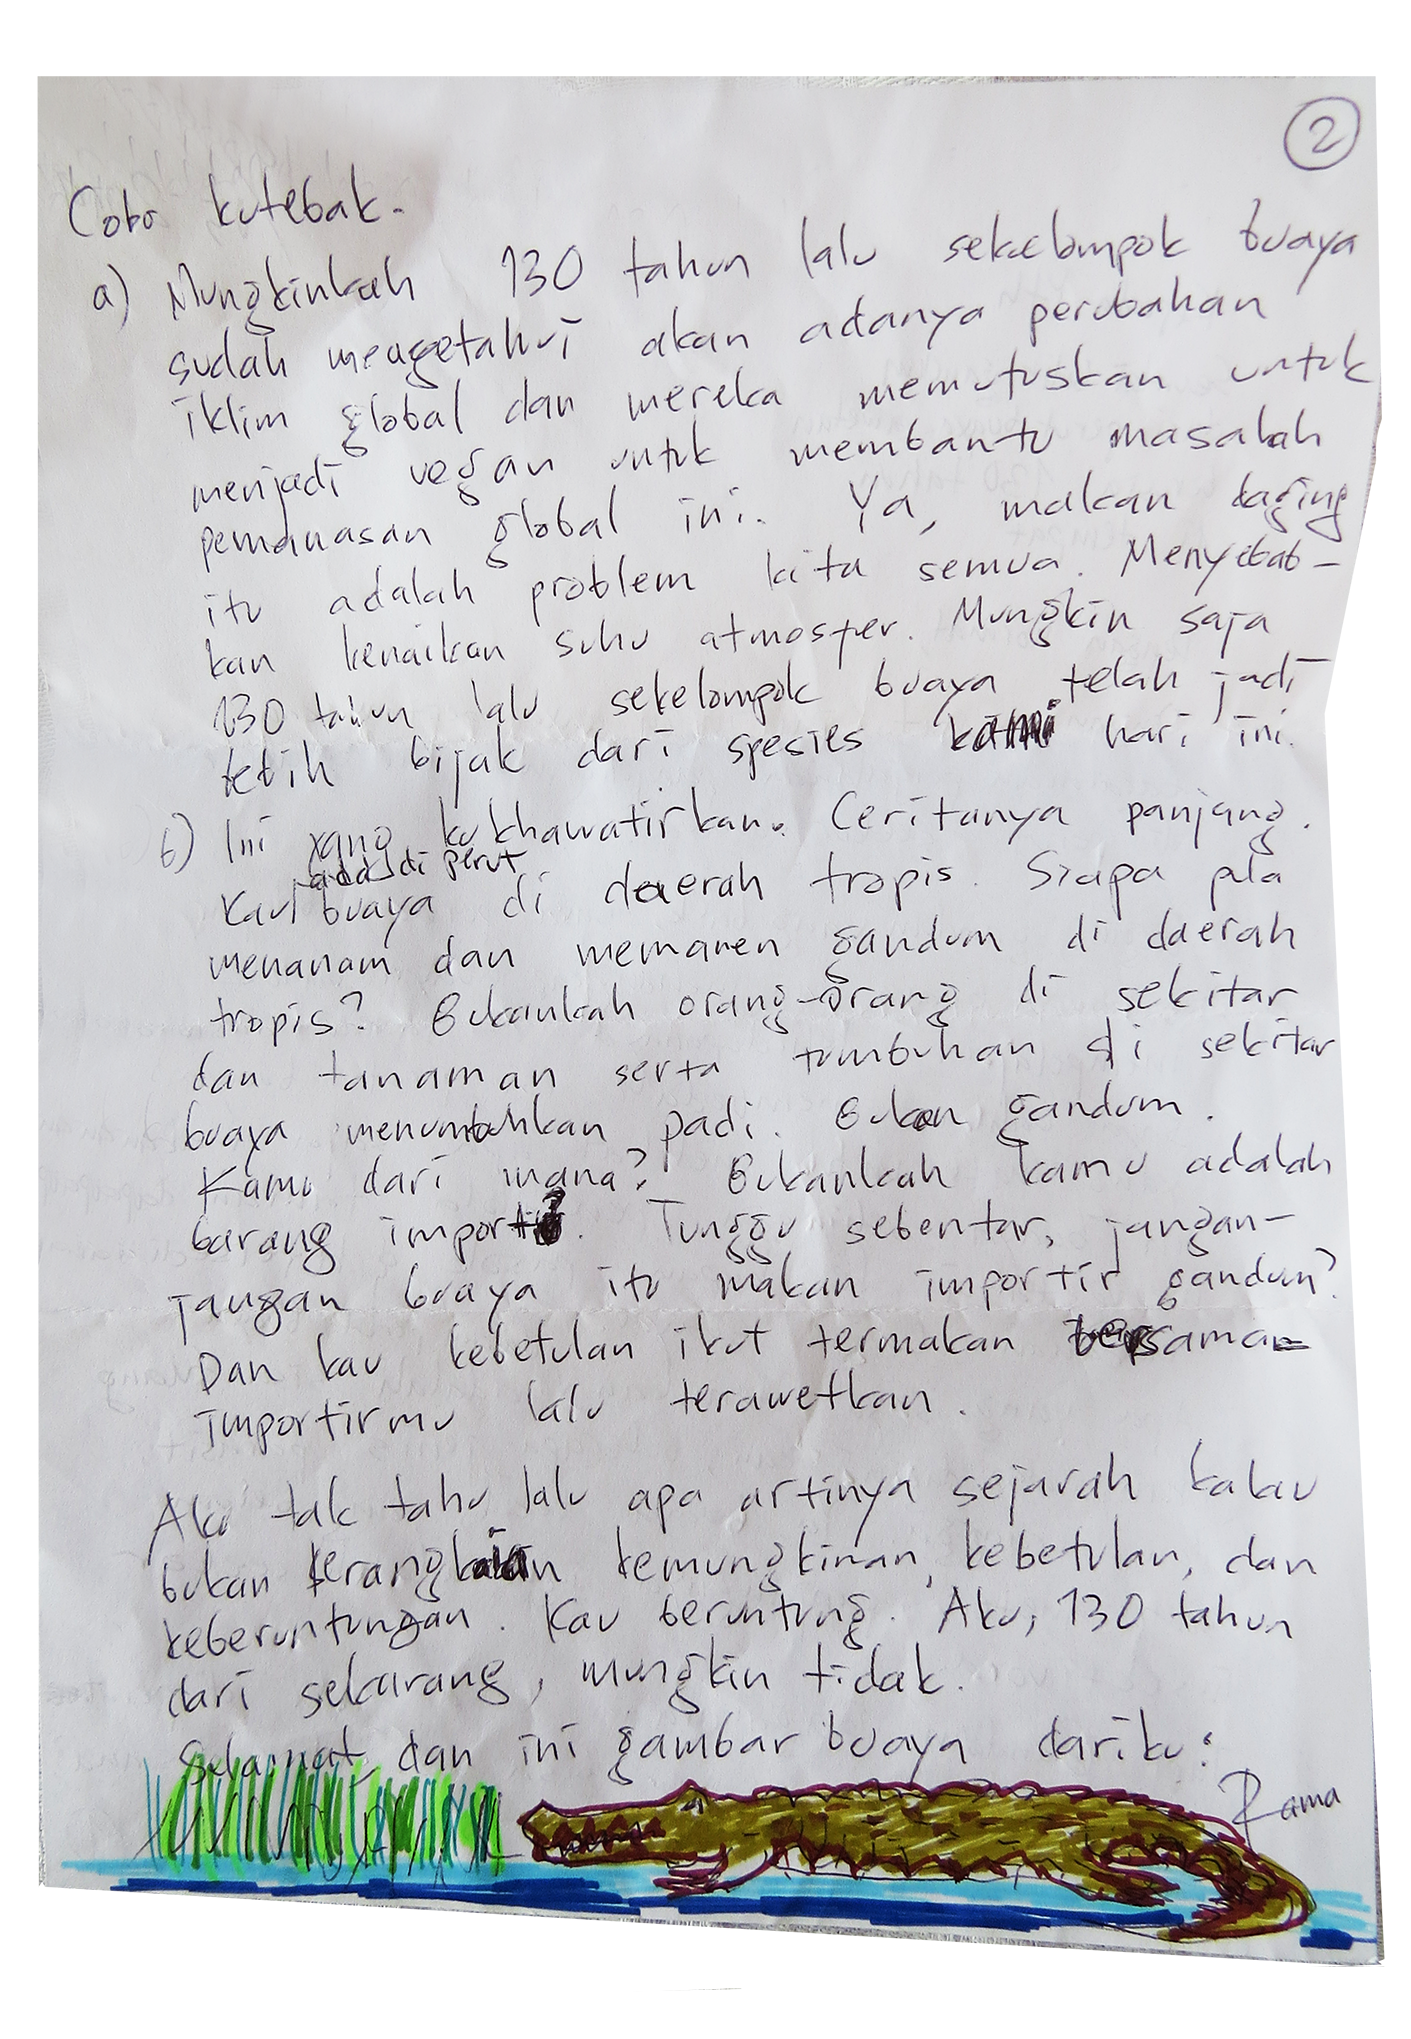 2
Coba kutebak.
a) Mungkinkah 130 tahun lalu sekelompok buaya
sudah mengetahui akan adanya perubahan
iklim global dan mereka memutuskan untuk
menjadi vegan untuk membantu masalah
pemanasan global ini. Ya, makan daging
itu adalah problem kita semua. Menyebab-
kan kenaikan suhu atmosfer. Mungkin saja
130 tahun lalu sekelompok buaya telah jadi
lebih bijak dari spesies kami hari ini.
b) Ini yang kukhawatirkan. Ceritanya panjang.
ada di perut
Kau buaya di daerah tropis. Siapa pula
menanam dan memanen gandum di daerah
tropis? Bukankah orang-orang di sekitar
dan tanaman serta tumbuhan di sekitar
buaya menumbuhkan padi. Bukan gandum.
Kamu dari mana? Bukankah kamu adalah
barang import. Tunggu sebentar, jangan-
jangan buaya itu makan importir gandum?
Dan kau kebetulan ikut termakan bersama
importirmu lalu terawetkan.
Aku tak tahu lalu apa artinya sejarah kalau
bukan serangkaian kemungkinan, kebetulan, dan
keberuntungan. Kau beruntung. Aku, 130 tahun
dari sekarang, mungkin tidak.
Selamat, dan ini gambar buaya dariku:
Rama